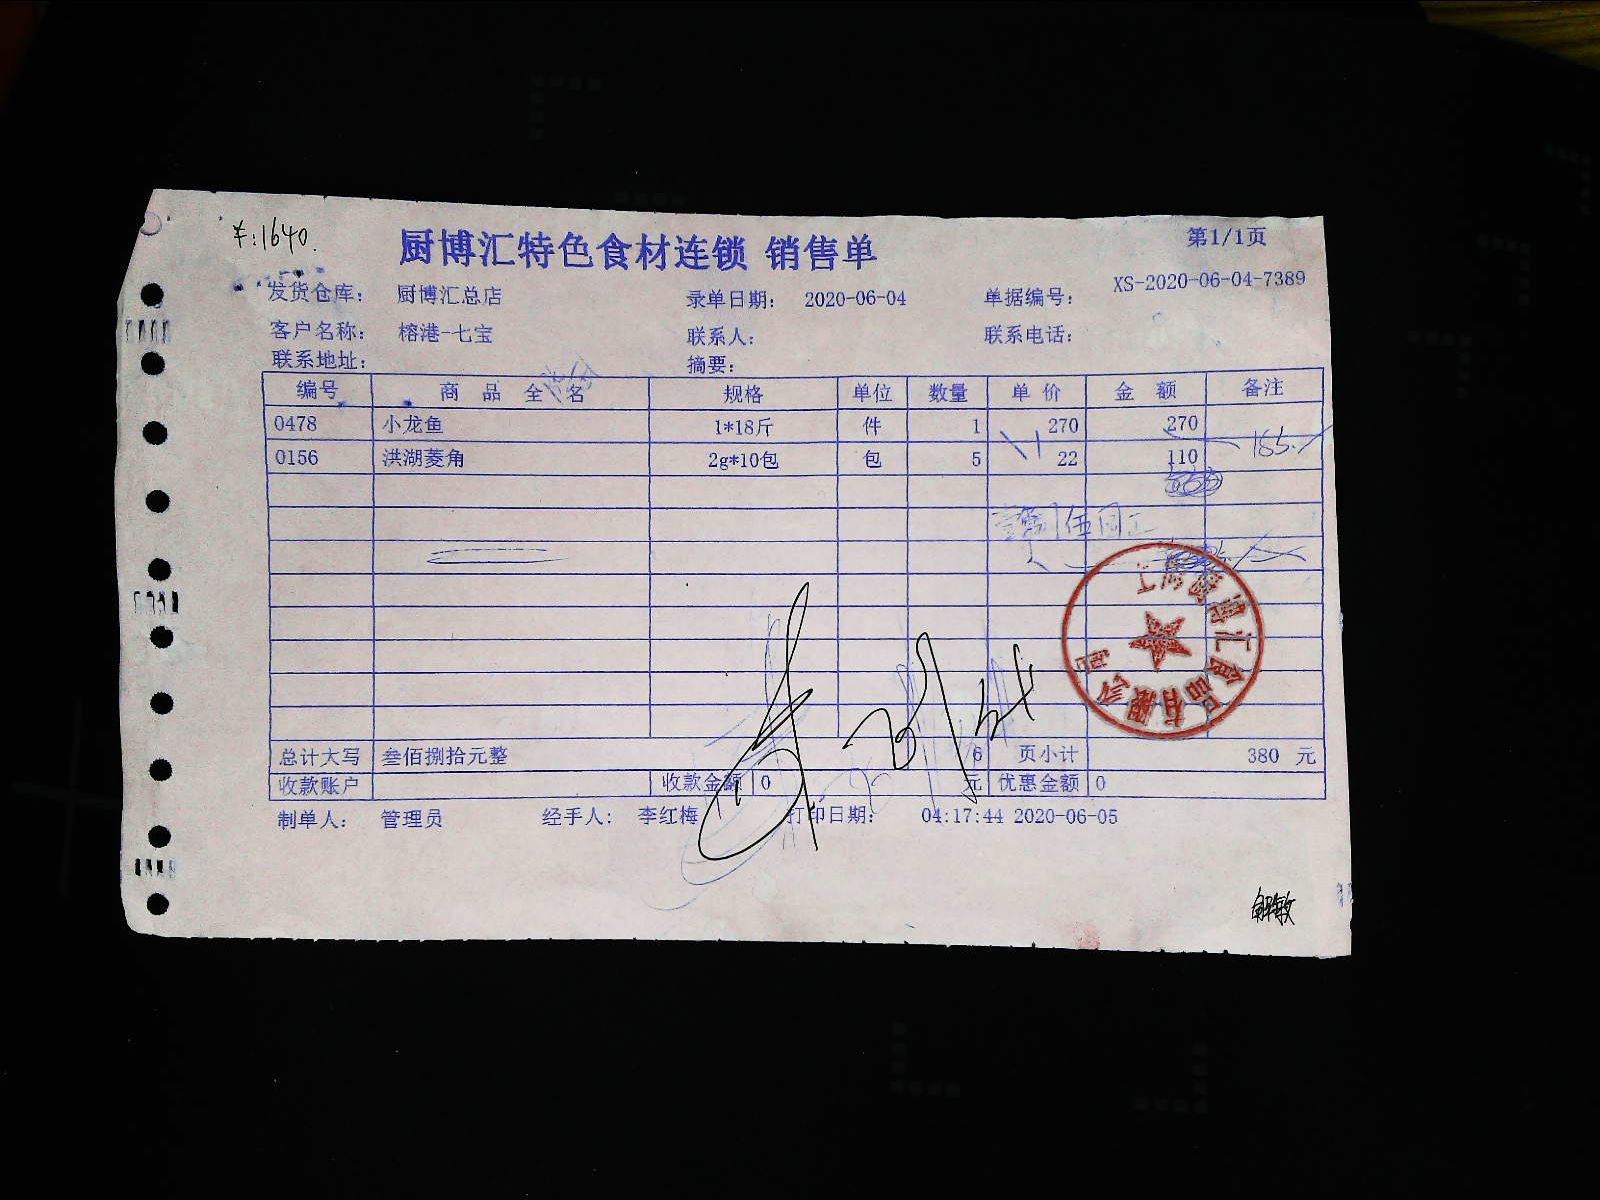 ¥:1640.
厨博汇特色食材连锁 销售单 第1/1页
发货仓库： 厨博汇总店 录单日期： 2020-06-04 单据编号： XS-2020-06-04-7389
客户名称： 榕港-七宝 联系人： 联系电话：
联系地址： 摘要：
编号 商 品 全 名 规格 单位 数量 单 价 金 额 备注
0478 小龙鱼 1*18斤 件 1 270 270
0156 洪湖菱角 2g*10包 包 5 22 110
185.
总计大写 叁佰捌拾元整 6 页小计 380 元
收款账户 收款金额 0 元 优惠金额 0
制单人： 管理员 经手人： 李红梅 打印日期： 04:17:44 2020-06-05